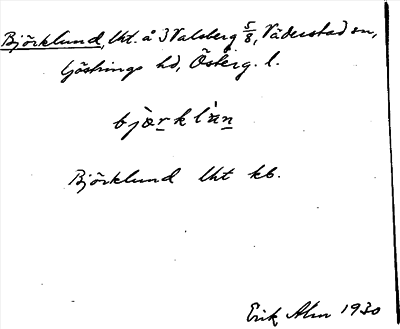 Björklund, lht. å 3 Valsberg 5/8, Väderstad sn,
Göstrings hd, Österg. l.
bjærklàn
Björklund lht kb.
Erik Alm 1930